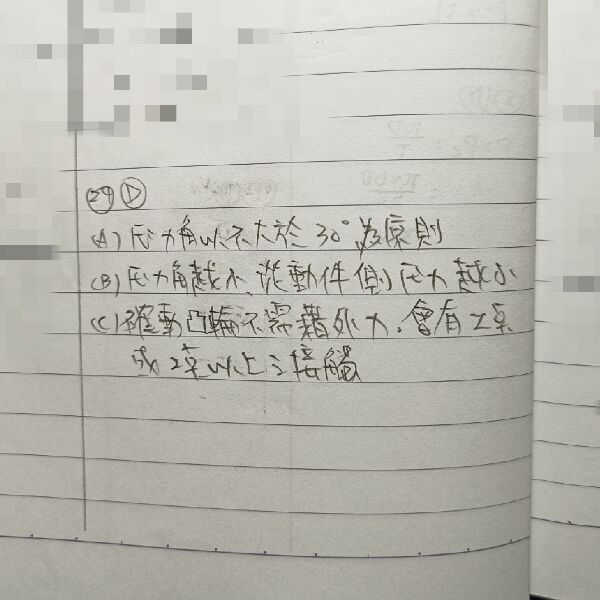 29 D
(A) 壓力角以不大於 30° 為原則
(B) 壓力角越小,從動件側壓力越小
(C) 確動凸輪不需藉外力,會有2點
或2點以上之接觸